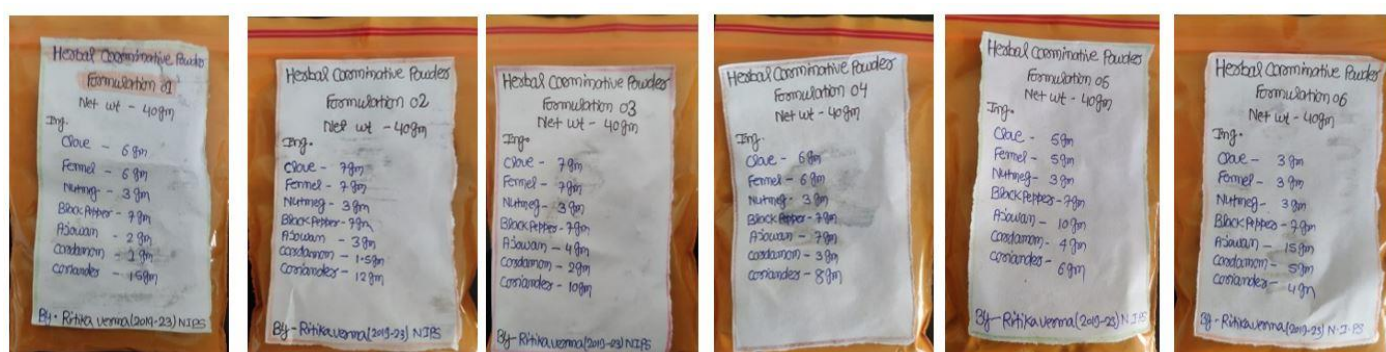 Herbal Coorminative Powder
Formulation 01
Net wt - 40gm
Ing.
Clove - 6gm
Fennel - 6gm
Nutmeg - 3gm
Black Pepper - 7gm
Ajowan - 2gm
Cardamom - 1gm
Coriander - 15gm
By - Ritika verma (2019-23) NIPS
Herbal Coorminative Powder
Formulation 02
Net wt - 40gm
Ing.
Clove - 7gm
Fennel - 7gm
Nutmeg - 3gm
Black Pepper - 7gm
Ajowan - 3gm
Cardamom - 1.5gm
Coriander - 12gm
By - Ritika verma (2019-23) NIPS
Herbal Coorminative Powder
Formulation 03
Net wt - 40gm
Ing.
Clove - 7gm
Fennel - 7gm
Nutmeg - 3gm
Black Pepper - 7gm
Ajowan - 4gm
Cardamom - 2gm
Coriander - 10gm
By - Ritika verma (2019-23) NIPS
Herbal Coorminative Powder
Formulation 04
Net wt - 40gm
Ing.
Clove - 6gm
Fennel - 6gm
Nutmeg - 3gm
Black Pepper - 7gm
Ajowan - 7gm
Cardamom - 3gm
Coriander - 8gm
Herbal Coorminative Powder
Formulation 05
Net wt - 40gm
Ing.
Clove - 5gm
Fennel - 5gm
Nutmeg - 3gm
Black Pepper - 7gm
Ajowan - 10gm
Cardamom - 4gm
Coriander - 6gm
By - Ritika verma (2019-23) N.I.P.S
Herbal Coorminative Powder
Formulation 06
Net wt - 40gm
Ing.
Clove - 3gm
Fennel - 3gm
Nutmeg - 3gm
Black Pepper - 7gm
Ajowan - 15gm
Cardamom - 5gm
Coriander - 4gm
By - Ritika verma (2019-23) N.I.P.S